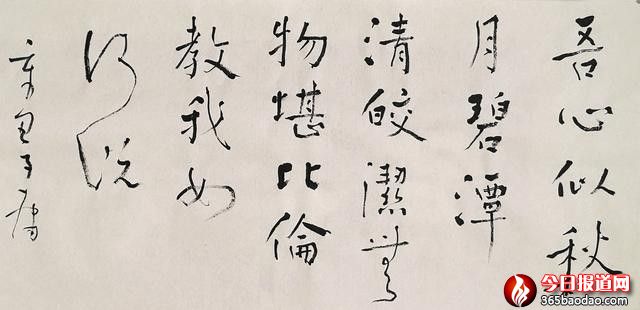 吾心似秋
月碧潭
清皎潔無
物堪比倫
教我如
何説
今日报道网
365baodao.com